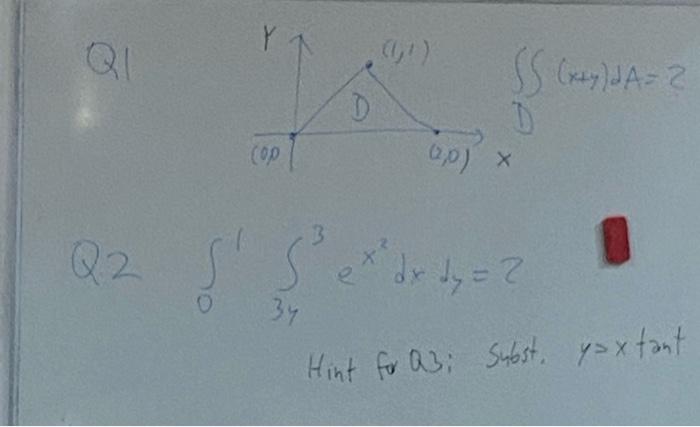 Q1
Y
(1,1)
D
(0,0
(2,0)
X
∬ (x+y)dA=?
D
Q2 ∫₀¹ ∫₃ᵧ³ e^{x²} dx dy = ?
Hint for Q3: Subst. y=x tant